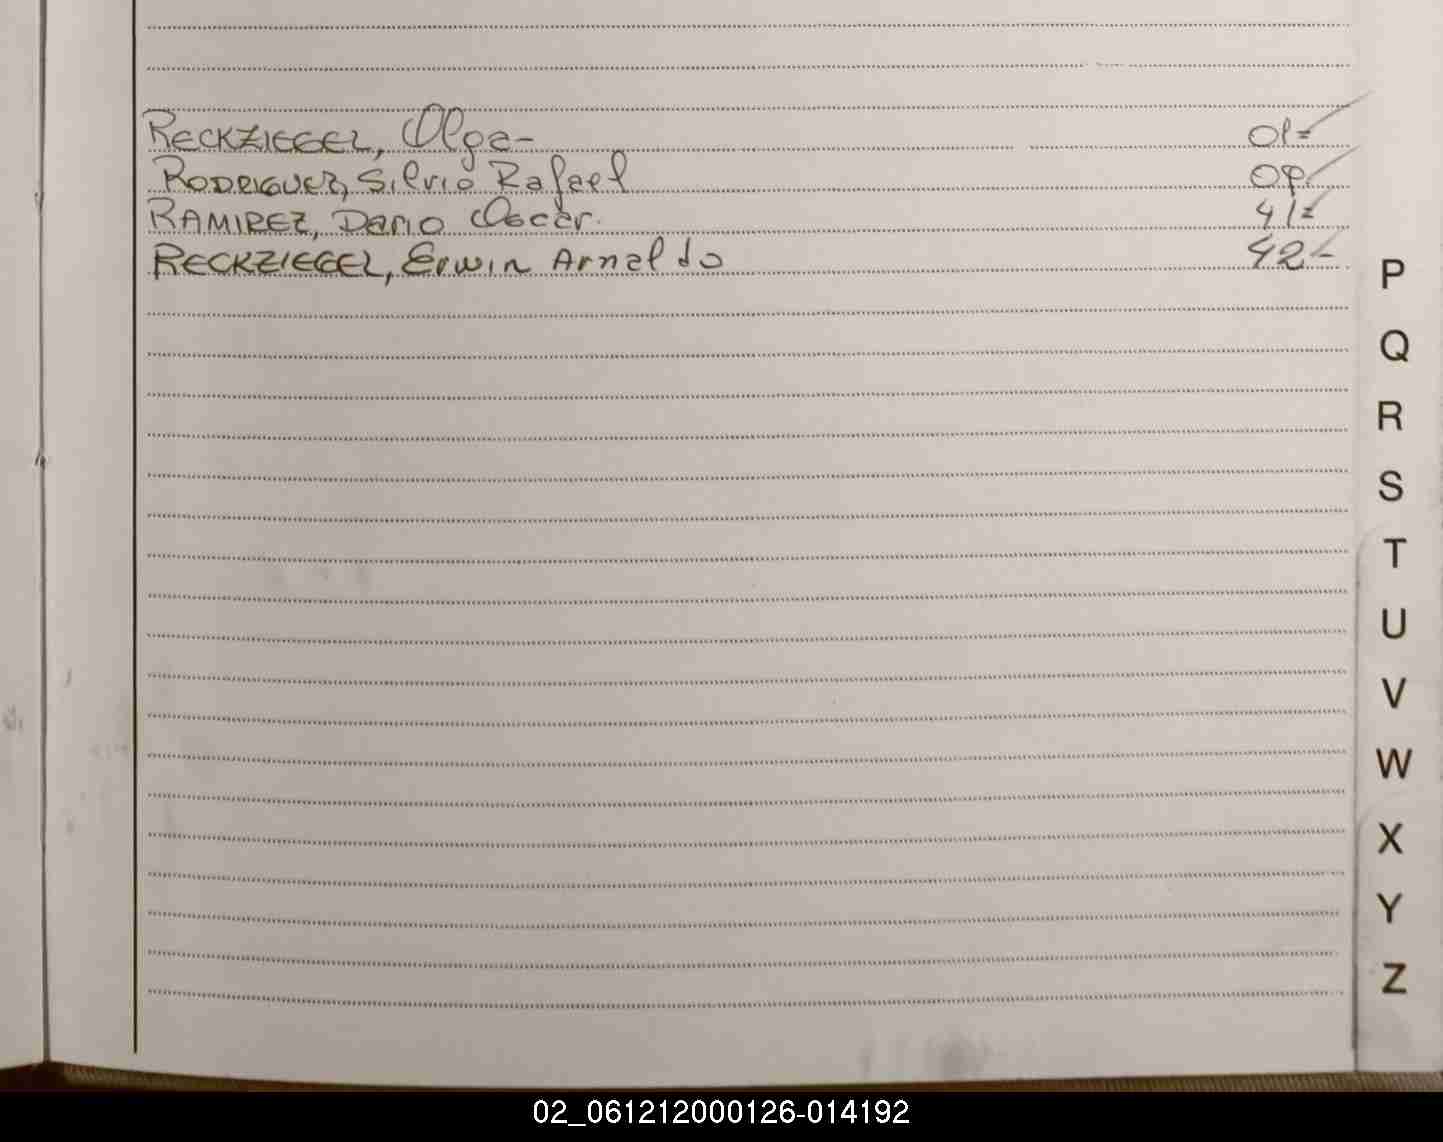 RECKZIEGEL, Olga- 01=
RODRIGUEZ, Silvio Rafael 09-
RAMIREZ, Dario Oscar. 41=
RECKZIEGEL, Erwin Arnaldo 42-
P
Q
R
S
T
U
V
W
X
Y
Z
02_061212000126-014192